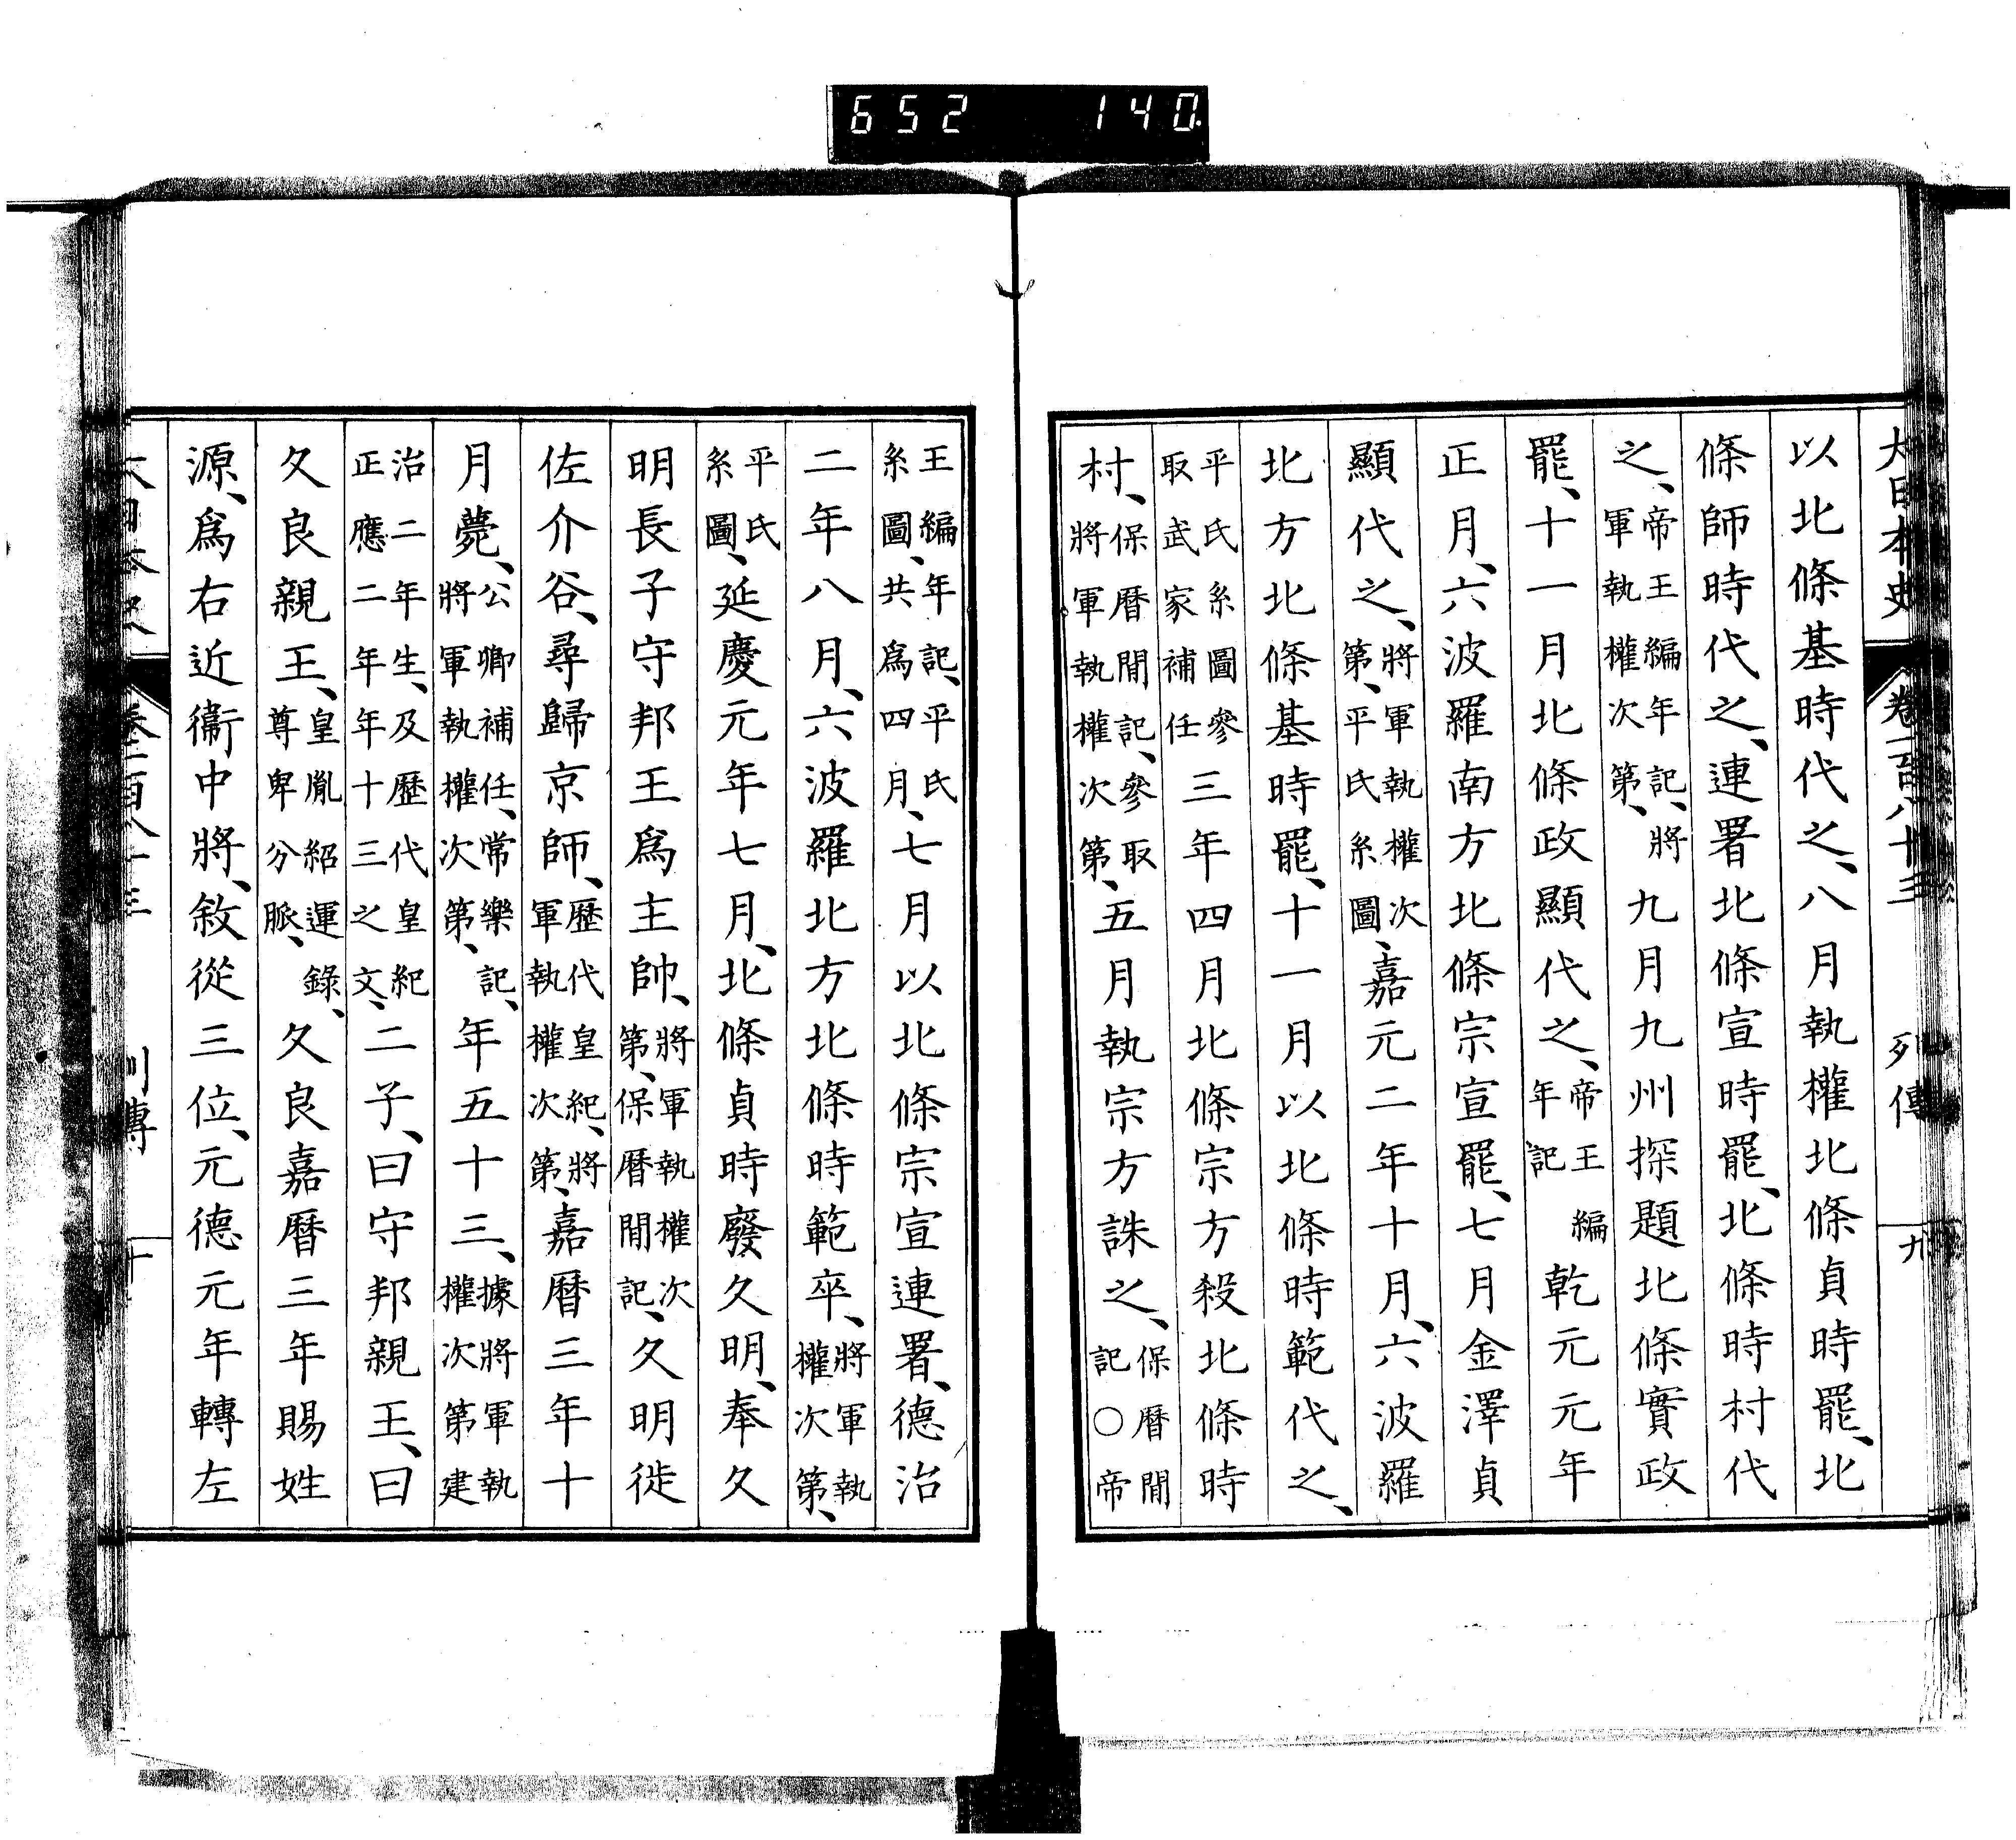 652 140
大日本史 卷一百八十三 列傳 九
以北條基時代之、八月執權北條貞時罷、北
條師時代之、連署北條宣時罷、北條時村代
之、帝王編年記、將軍執權次第、九月九州探題北條實政
罷、十一月北條政顯代之、帝王編年記乾元元年
正月、六波羅南方北條宗宣罷、七月金澤貞
顯代之、將軍執權次第、平氏系圖、嘉元二年十月、六波羅
北方北條基時罷、十一月以北條時範代之、
平氏系圖參取武家補任三年四月北條宗方殺北條時
村、保曆間記、參取將軍執權次第、五月執宗方誅之、保曆間記○帝
王編年記、平氏系圖、共爲四月、七月以北條宗宣連署、德治
二年八月、六波羅北方北條時範卒、將軍執權次第、
平氏系圖、延慶元年七月、北條貞時廢久明、奉久
明長子守邦王爲主帥、將軍執權次第、保曆間記、久明徙
佐介谷、尋歸京師、歷代皇紀、將軍執權次第、嘉曆三年十
月薨、公卿補任、常樂記、將軍執權次第、年五十三、據將軍執權次第建
治二年生、及歷代皇紀正應二年年十三之文、二子、曰守邦親王、曰
久良親王、皇胤紹運錄、尊卑分脈、久良嘉曆三年賜姓
源、爲右近衞中將、敘從三位、元德元年轉左